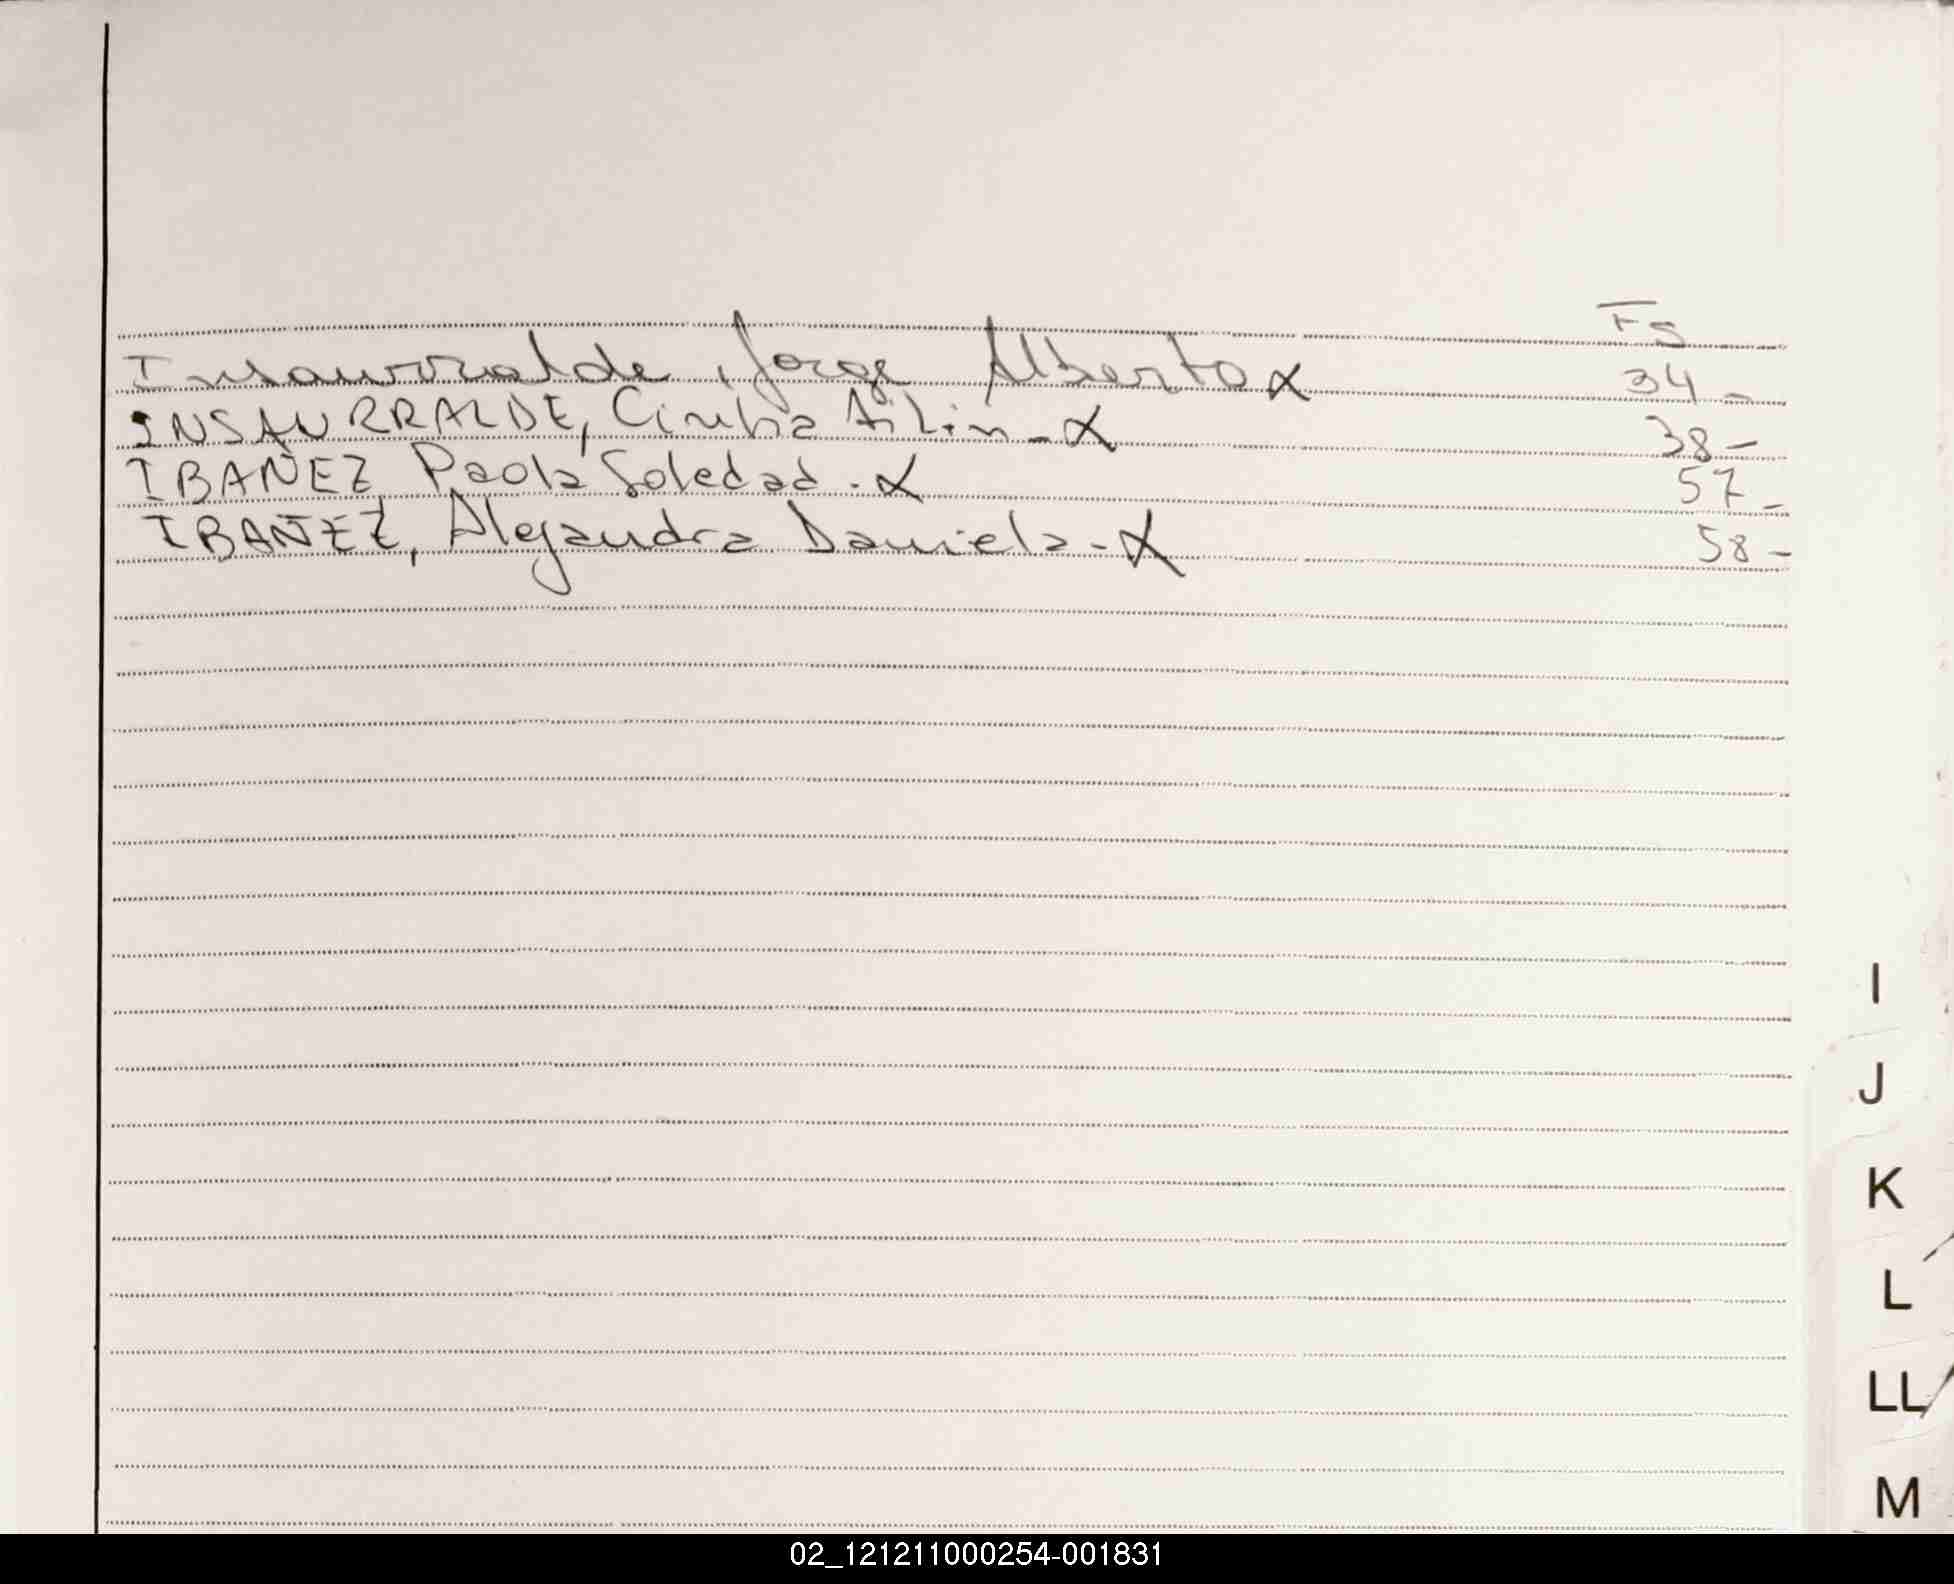 Fs
Insaurralde, Jorge Alberto α 34 -
INSAURRALDE, Cinthia Ailin - α 38 -
IBAÑEZ Paola Soledad . α 57 -
IBAÑEZ, Alejandra Daniela - α 58 -
I
J
K
L
LL
M
02_121211000254-001831